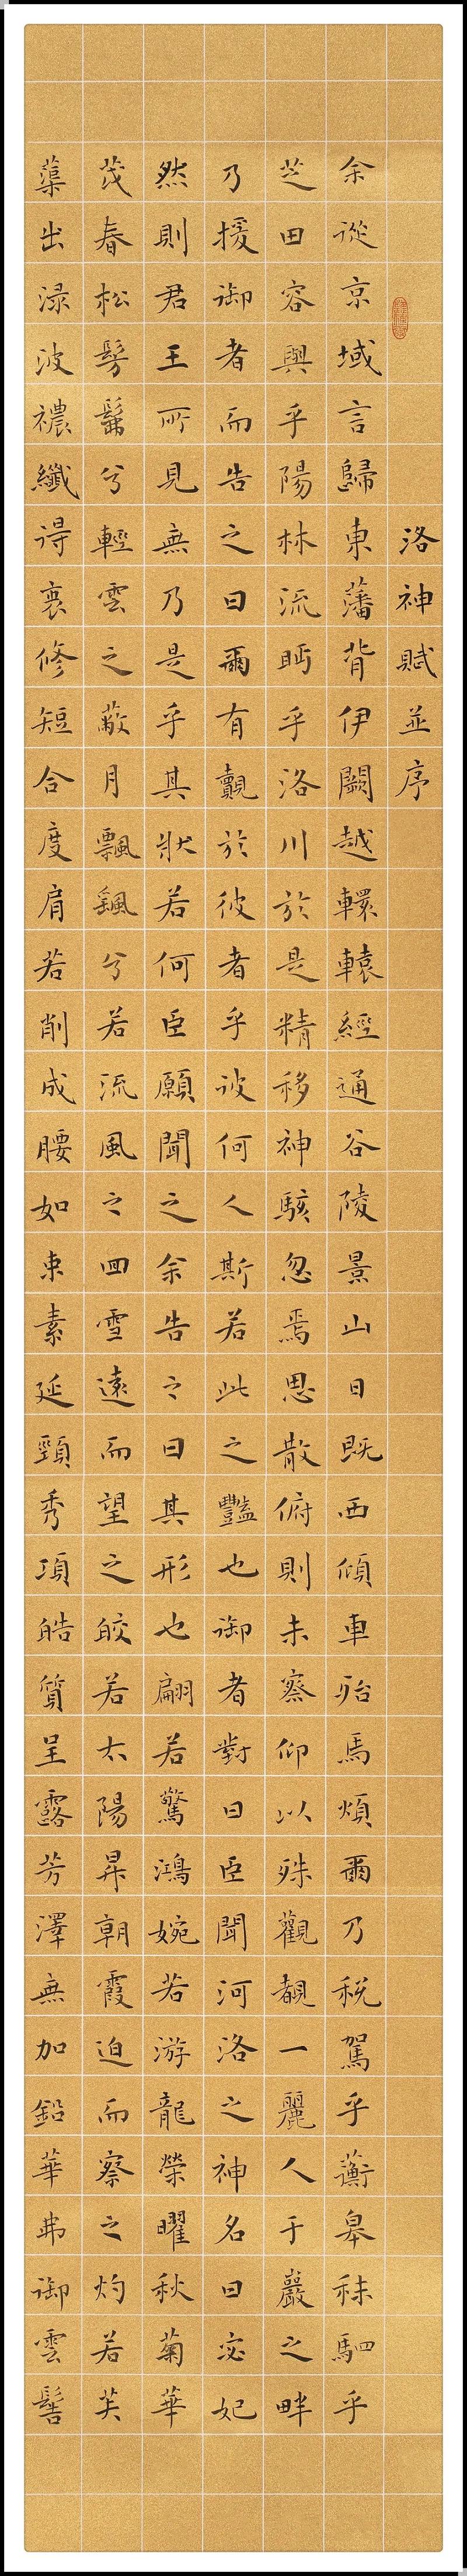 洛神賦並序
余從京域言歸東藩背伊闕越轘轅經通谷陵景山日既西傾車殆馬煩爾乃税駕乎蘅皋秣駟乎
芝田容與乎陽林流眄乎洛川於是精移神駭忽焉思散俯則未察仰以殊觀覩一麗人于巖之畔
乃援御者而告之曰爾有覿於彼者乎彼何人斯若此之豔也御者對曰臣聞河洛之神名曰宓妃
然則君王所見無乃是乎其狀若何臣願聞之余告之曰其形也翩若驚鴻婉若游龍榮曜秋菊華
茂春松髣髴兮輕雲之蔽月飄飖兮若流風之回雪遠而望之皎若太陽昇朝霞迫而察之灼若芙
蕖出渌波襛纖得衷修短合度肩若削成腰如束素延頸秀項皓質呈露芳澤無加鉛華弗御雲髻